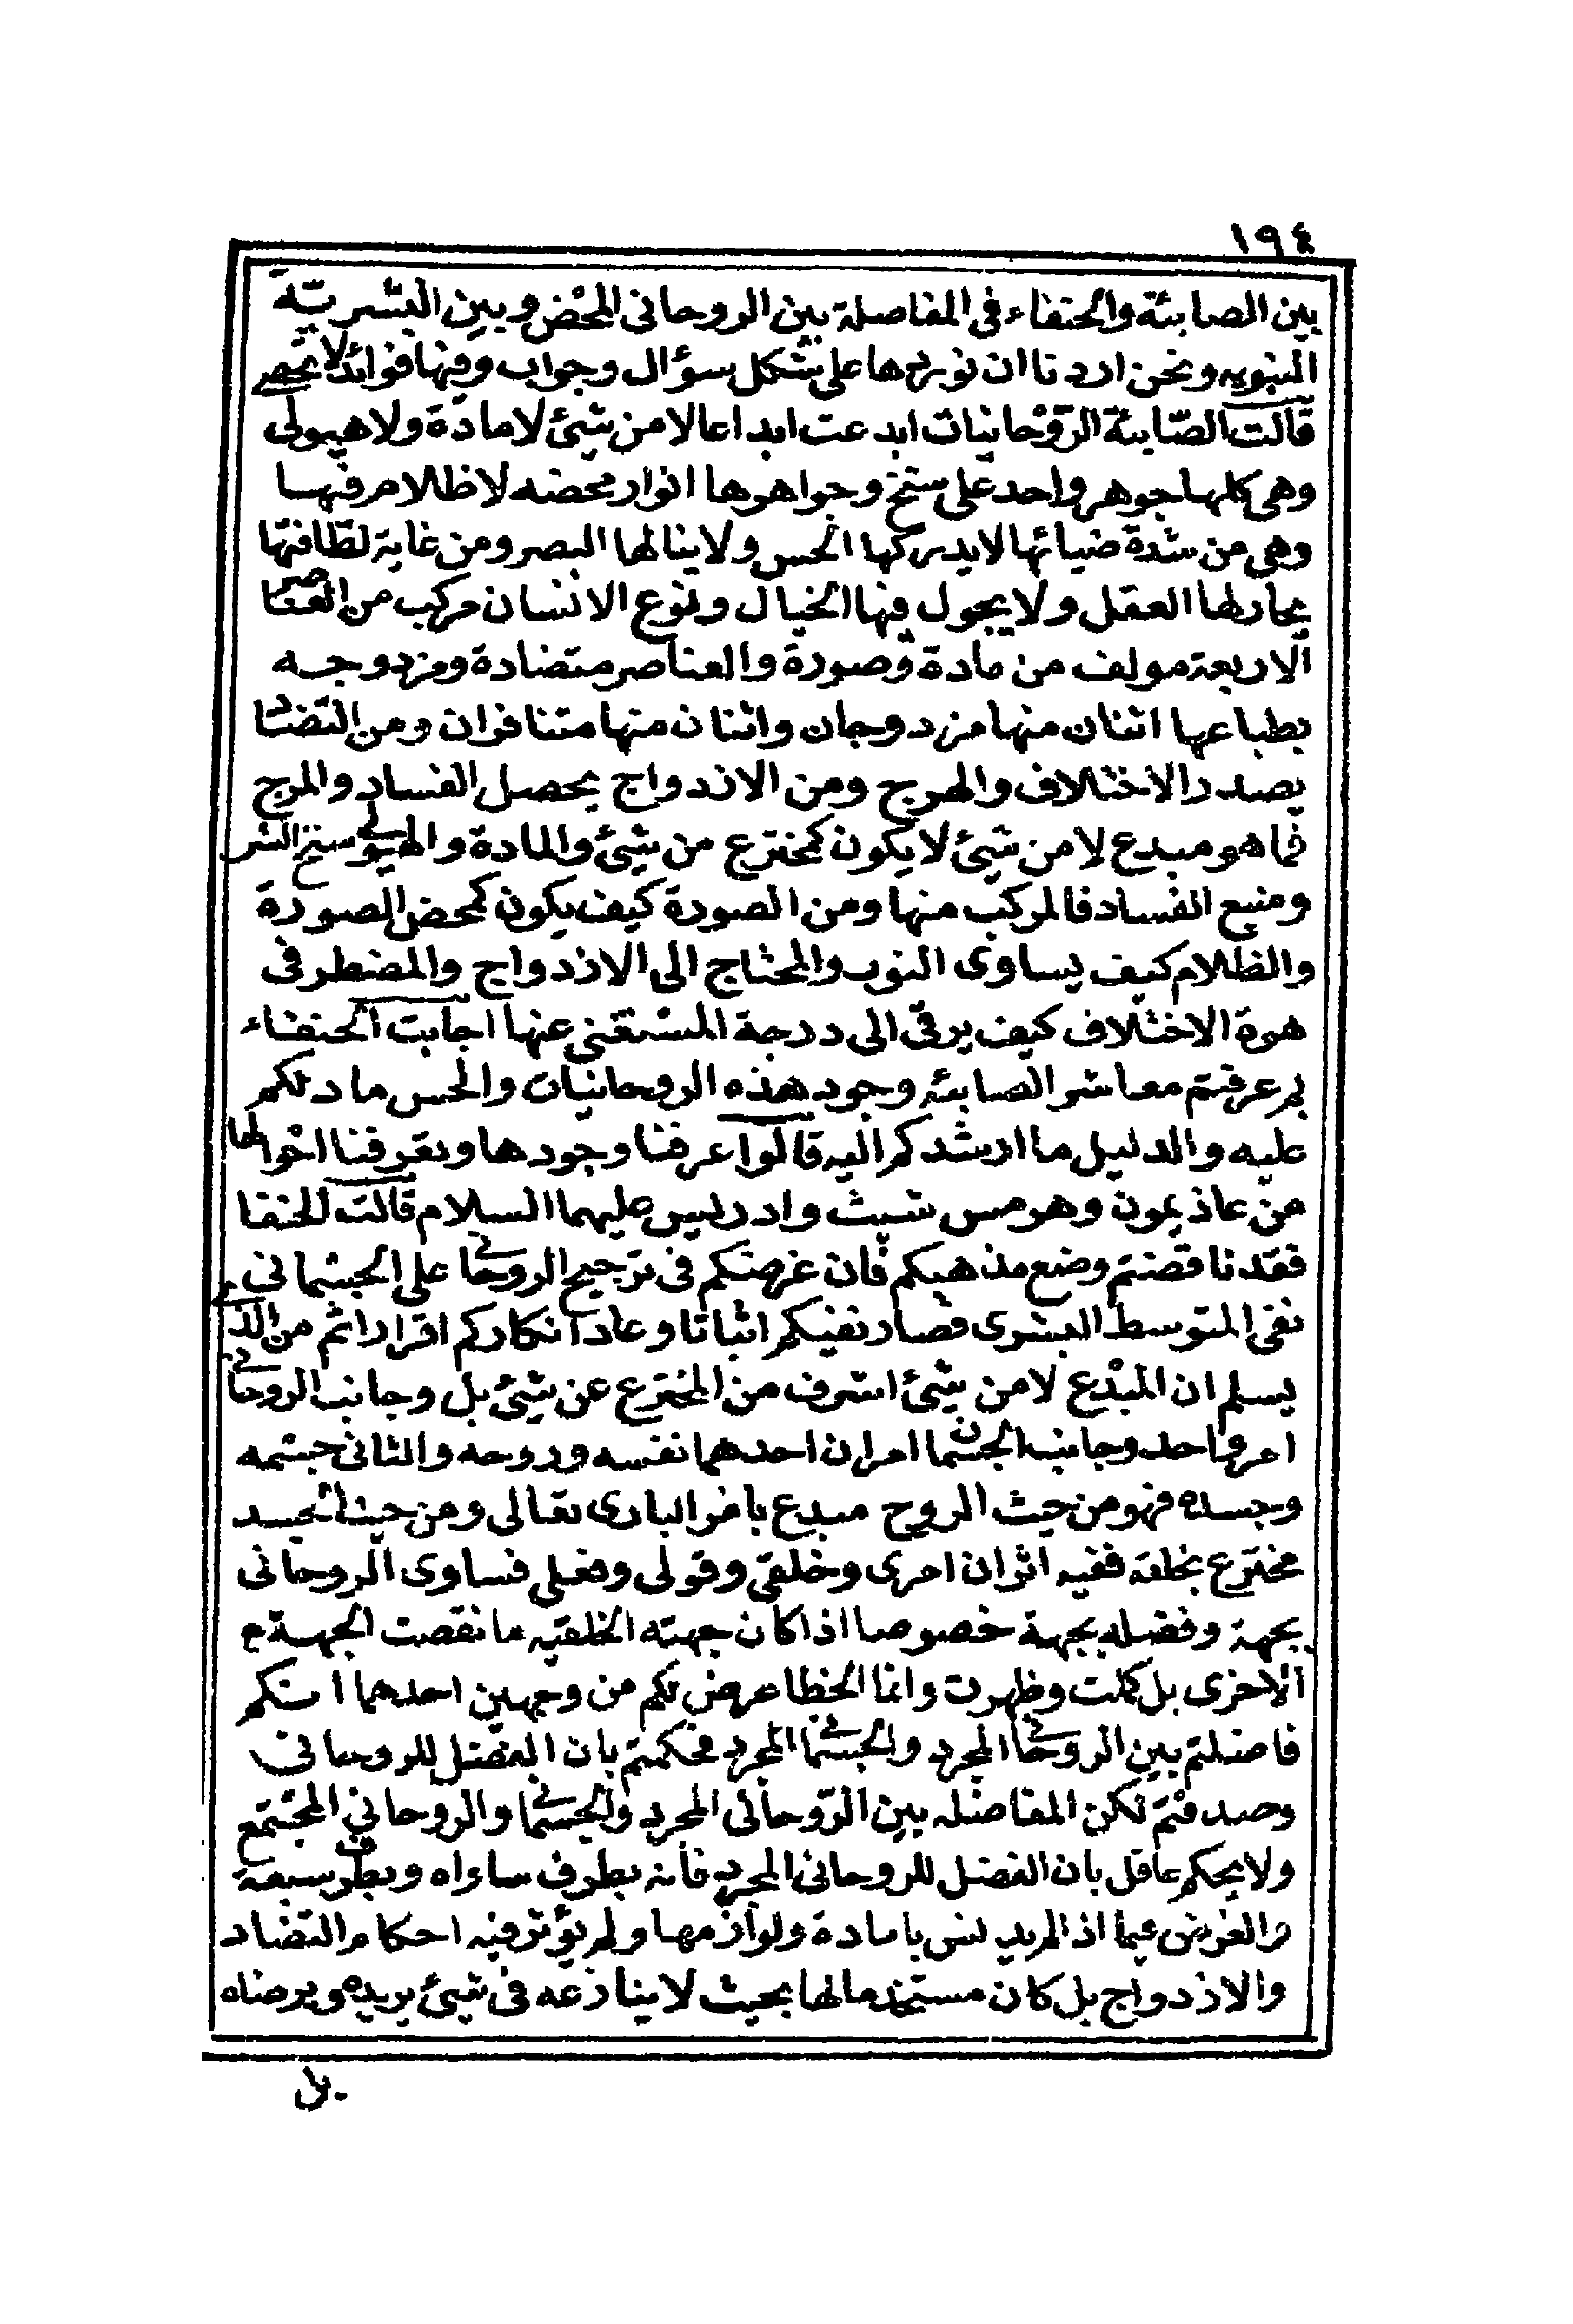 ١٩٤
بين الصابئة والحنفاء في المفاضلة بين الروحاني المحض وبين البشرية
النبويه ونحن اردنا ان نوردها على شكل سؤال وجواب وفيها فوائد لا تحصى
قالت الصّابئة الرّوْحانيات ابدعت ابداعا لا من شيئ لا مادة ولا هيولى
وهى كلها جوهر واحد على سنخ وجواهرها انوار محضه لا ظلام فيها
وهى من شدة ضيائها لا يدركها الحس ولا ينالها البصر ومن غاية لطافتها
يحار لها العقل ولا يجول فيها الخيال ونوع الانسان مركب من العناصر
الاربعة مولف من مادة وصورة والعناصر متضادة ومزدوجه
بطباعها اثنان منها مزدوجان واثنان منها متنافران ومن التضاد
يصدر الاختلاف والهرج ومن الازدواج يحصل الفساد والمرج
فما هو مبدع لا من شيئ لا يكون كمخترع من شيئ والمادة والهيولى سنخ الشر
ومنبع الفساد فالمركب منها ومن الصورة كيف يكون كمحض الصورة
والظلام كيف يساوى النور والمحتاج الى الازدواج والمضطر فى
هوة الاختلاف كيف يرقى الى درجة المستغنى عنها اجابت الحنفاء
بم عرفتم معاشر الصابئه وجود هذه الروحانيات والحس ما دلكم
عليه والدليل ما ارشدكم اليه قالوا عرفنا وجودها وتعرفنا احوالها
من عاذيمون وهرمس شيث وادريس عليهما السلام قالت الحنفا
فقد ناقضتم وضع مذهبكم فان غرضكم فى ترجيح الروحانى على الجسمانى
نفى المتوسط البشرى فصار نفيكم اثباتا وعاد انكاركم اقرارا ثم من الذى
يسلم ان المبْدع لا من شيئ اشرف من المخترع عن شيئ بل وجانب الروحانى
امر واحد وجانب الجسمانى امران احدهما نفسه وروحه والثانى جسمه
وجسده فهو من حيث الروح مبدع بامر البارى تعالى ومن حيث الجسد
مخترع بخلقه ففيه اثران امرى وخلقى وقولى وفعلى فساوى الروحانى
بجهة وفضله بجهة خصوصا اذا كان جهته الخلقيه ما نقصت الجهة
الاخرى بل كملت وظهرت وانما الخطا عرض لكم من وجهين احدهما انكم
فاضلتم بين الروحانى المجرد والجسمانى المجرد فحكمتم بان الفضل للروحانى
وصدقتم لكن المفاضله بين الرّوحانى المجرد والجسمانى والروحانى المجتمع
ولا يحكم عاقل بان الفضل للروحانى المجرد فانه بطرف ساواه وبطرف سبقه
والفرض فيما اذا لم يدنس بالمادة ولوازمها ولم يؤثر فيه احكام التضاد
والازدواج بل كان مستخدما لها بحيث لا ينازعه فى شيئ يريده ويرضاه
بل